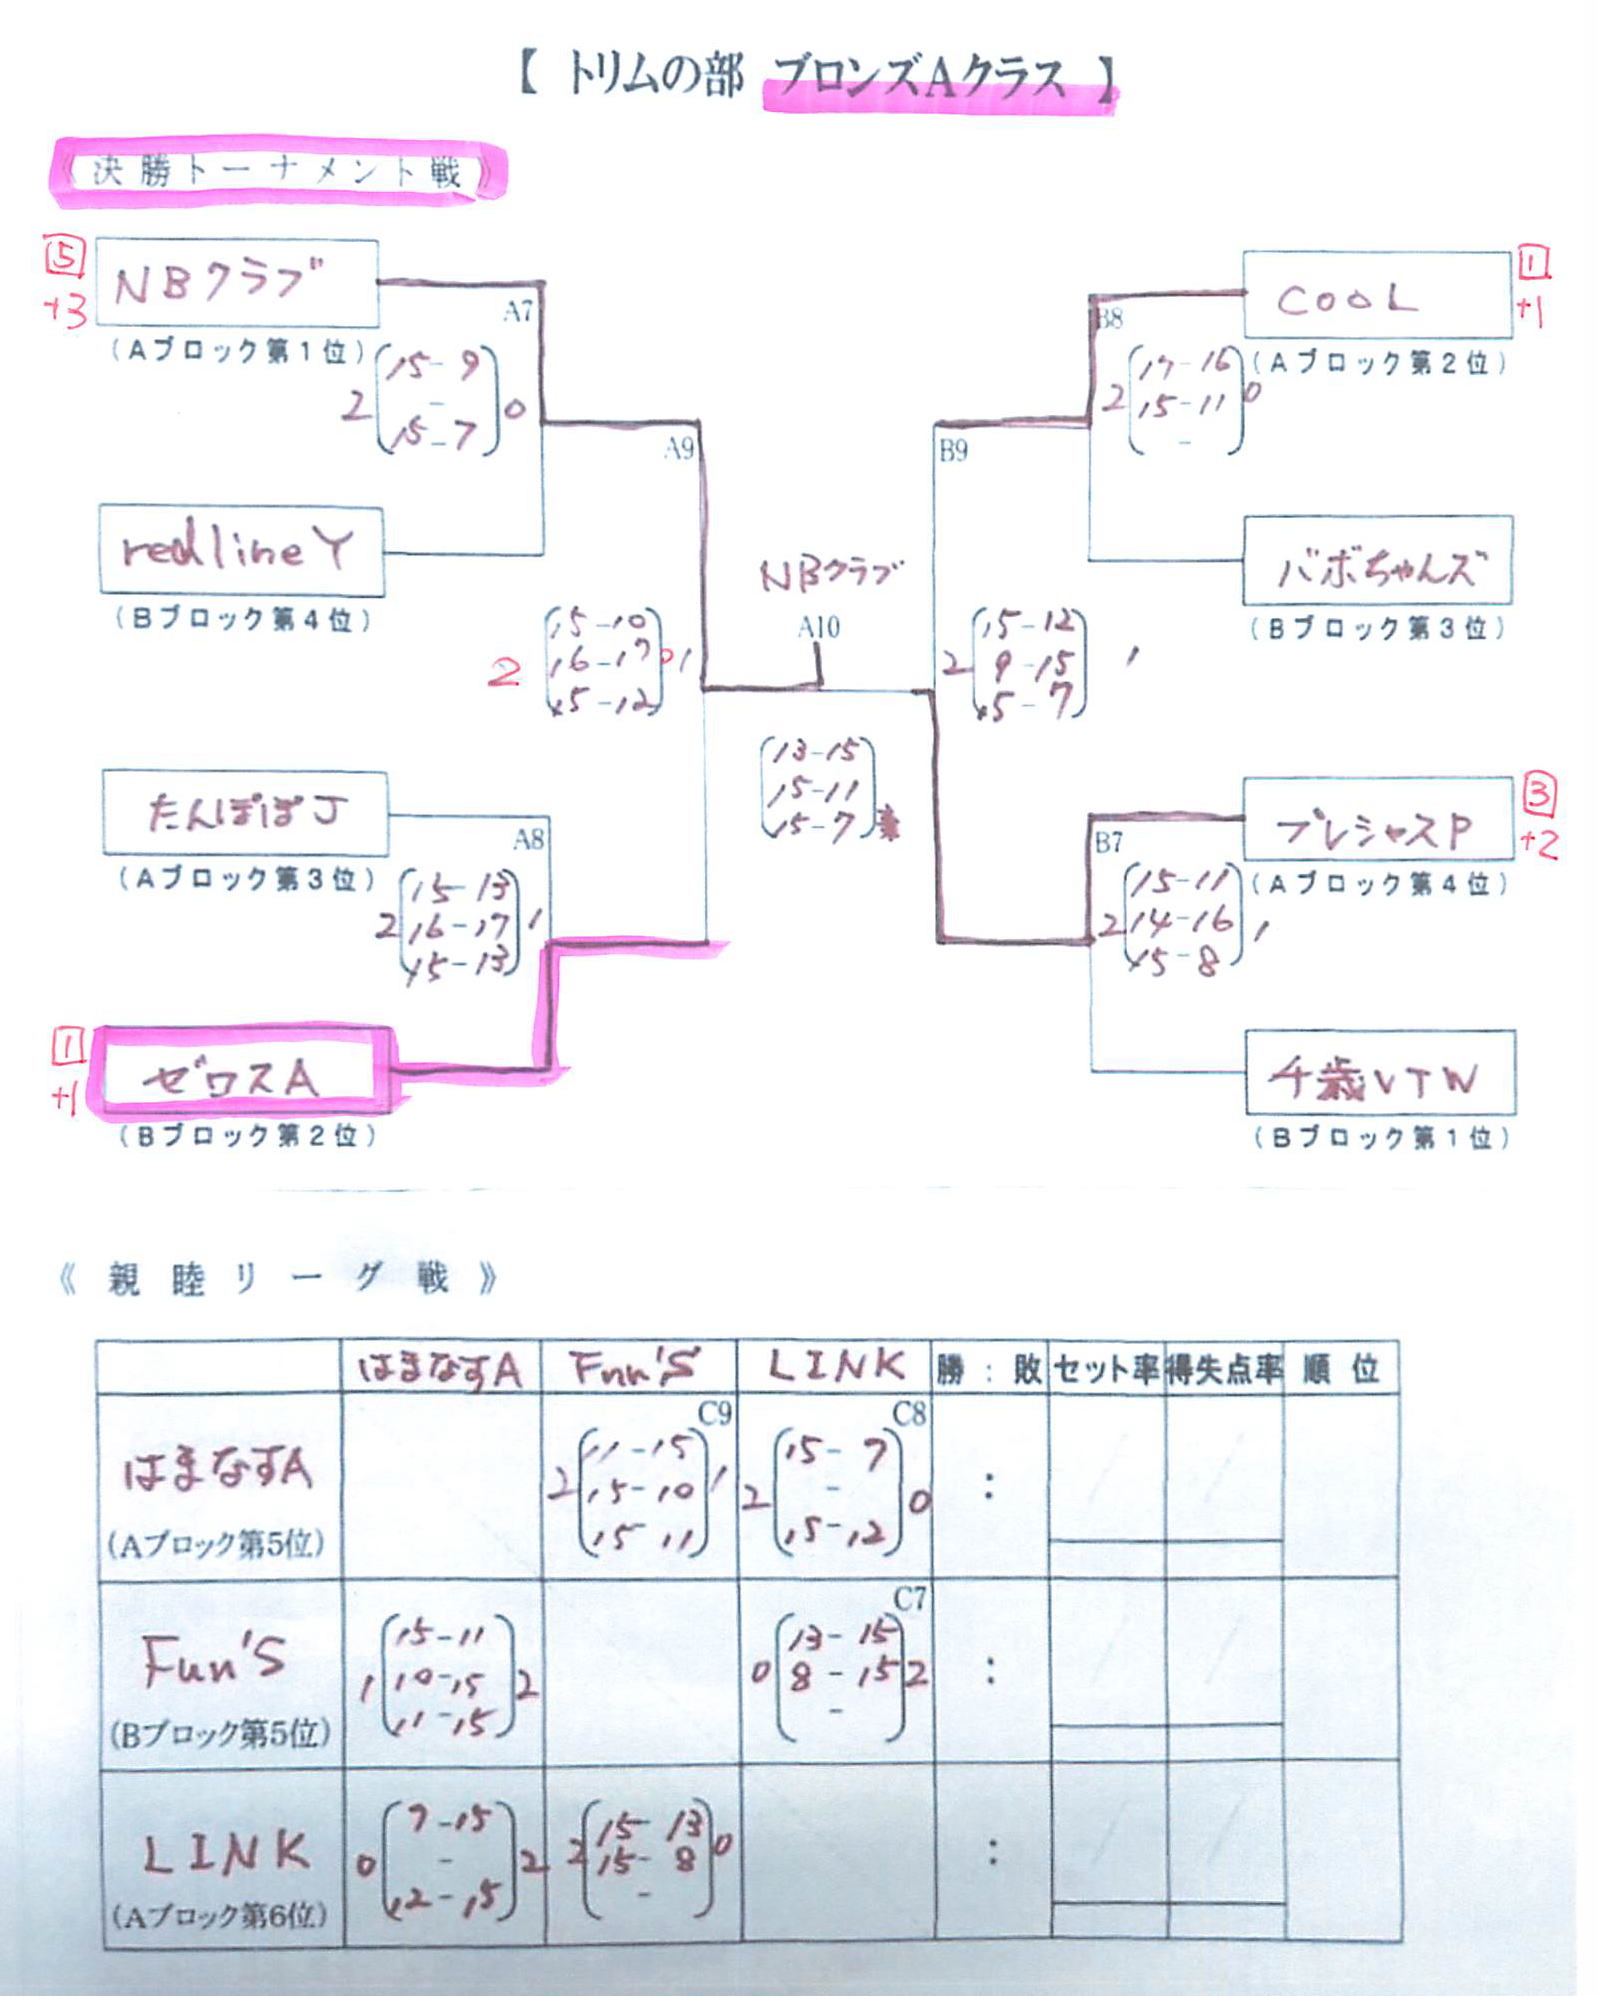 【 トリムの部 ブロンズAクラス 】
《決勝トーナメント戦》
5
+3
NBクラブ
(Aブロック第1位)
A7
2 (15-9 0
-
15-7)
redlineY
(Bブロック第4位)
A9
2 (15-10
16-17 0 1
15-12)
たんぽぽJ
(Aブロック第3位)
A8
2 (15-13
16-17 1
15-13)
1
+1
ゼロスA
(Bブロック第2位)
NBクラブ
A10
(13-15
15-11
15-7)
1
+1
COOL
(Aブロック第2位)
B8
2 (17-16 0
15-11
-)
バボちゃんズ
(Bブロック第3位)
B9
2 (15-12
9-15 1
15-7)
3
+2
プレシャスP
(Aブロック第4位)
B7
2 (15-11
14-16 1
15-8)
千歳VTW
(Bブロック第1位)
《親睦リーグ戦》
はまなすA Fun'S LINK 勝:敗 セット率 得失点率 順位
はまなすA
(Aブロック第5位)
C9
2 (11-15 1
15-10
15 11)
C8
2 (15-7 0
-
15-12)
:
Fun'S
(Bブロック第5位)
1 (15-11 2
10-15
11-15)
C7
0 (13-15 2
8-15
-)
:
LINK
(Aブロック第6位)
0 (7-15 2
-
12-15)
2 (15 13 0
15-8
-)
: